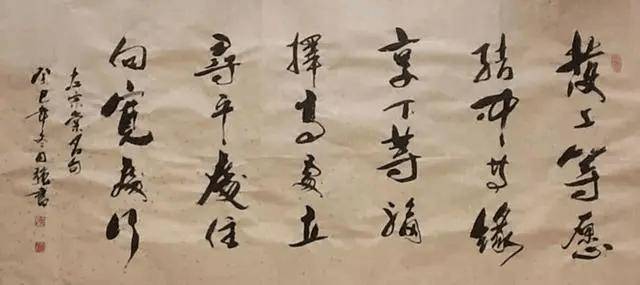 發上等愿
結中等緣
享下等福
擇高處立
尋平處住
向寬處行
左宗棠名句
癸巳年冬強書